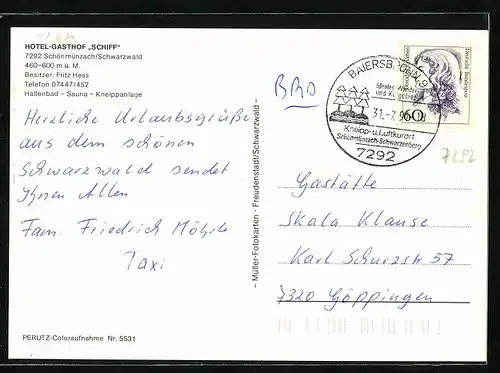 HOTEL-GASTHOF „SCHIFF"
7292 Schönmünzach/Schwarzwald
460–600 m ü. M.
Besitzer: Fritz Hess
Telefon 07447/452
Hallenbad – Sauna – Kneippanlage
Herzliche Urlaubsgrüße
aus dem schönen
Schwarzwald sendet
Ihnen Allen
Fam. Friedrich
Taxi
PERUTZ-Coloraufnahme Nr. 5531
– Müller-Fotokarten · Freudenstadt/Schwarzwald –
BRD
BAIERSBRONN 9
Ideales Wander-
31.-7.
Kneipp-u. Luftkurort
Schönmünzach-Schwarzenberg
7292
Deutsche Bundespost
60
7292
Gastätte
Skala Klause
Karl Schurzstr 57
7320 Göppingen